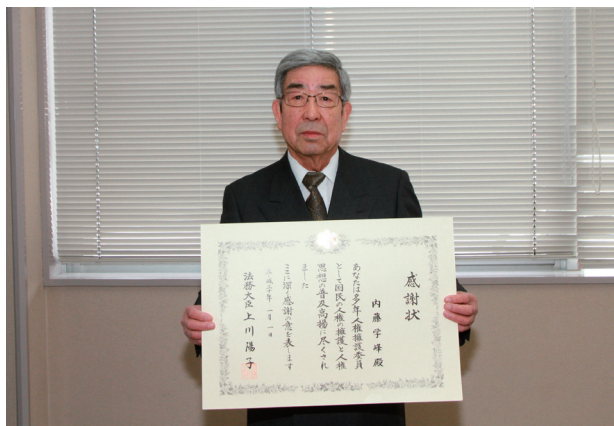 感謝状
内藤学峰殿
あなたは多年人権擁護委員
として国民の人権の擁護と人権
思想の普及高揚に尽くされ
ました
ここに深く感謝の意を表します
一月一日
法務大臣上川陽子